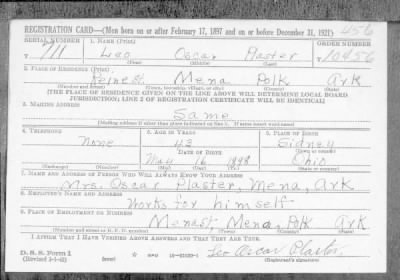 REGISTRATION CARD—(Men born on or after February 17, 1897 and on or before December 31, 1921) 456
SERIAL NUMBER 1. NAME (Print) ORDER NUMBER
711 Leo Oscar Plaster 10456
(First) (Middle) (Last)
2. PLACE OF RESIDENCE (Print)
Pine St. Mena Polk Ark
(Number and street) (Town, township, village, or city) (County) (State)
[THE PLACE OF RESIDENCE GIVEN ON THE LINE ABOVE WILL DETERMINE LOCAL BOARD
JURISDICTION; LINE 2 OF REGISTRATION CERTIFICATE WILL BE IDENTICAL]
3. MAILING ADDRESS
Same
[Mailing address if other than place indicated on line 2. If same insert word same]
4. TELEPHONE 5. AGE IN YEARS 6. PLACE OF BIRTH
None 43 Sidney
DATE OF BIRTH (Town or county)
May 16 1898 Ohio
(Exchange) (Number) (Mo.) (Day) (Yr.) (State or country)
7. NAME AND ADDRESS OF PERSON WHO WILL ALWAYS KNOW YOUR ADDRESS
Mrs. Oscar Plaster, Mena, Ark
8. EMPLOYER'S NAME AND ADDRESS
Works for himself
9. PLACE OF EMPLOYMENT OR BUSINESS
Mena St, Mena, Polk Ark
(Number and street or R. F. D. number) (Town) (County) (State)
I AFFIRM THAT I HAVE VERIFIED ABOVE ANSWERS AND THAT THEY ARE TRUE.
D. S. S. Form 1
(Revised 1-1-42) (over) Leo Oscar Plaster
(Registrant's signature)